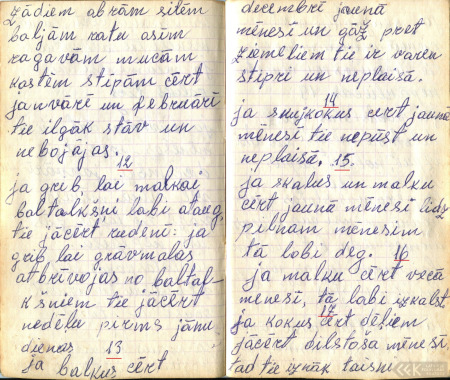 zādiem abrām silēm
baļļām ratu asīm
ragavām mucām
kastēm stīpām cērt
janvārī un februārī
tie ilgāk stāv un
nebojājas.
12
ja grib, lai malkai
baltalkšņi labi ataug,
tie jācērt rudenī: ja
grib lai grāvmalas
atbrīvojas no baltal-
kšņiem tie jācērt
nedēļu pirms jāņu
dienas 13
ja baļķus cērt
decembrī jaunā
mēnesī un gāž pret
ziemeļiem tie ir varen
stipri un neplaisā.
14
ja skujkokus cērt jaunā
mēnesī tie nepūst un
neplaisā. 15.
ja skalus un malku
cērt jaunā mēnesī līdz
pilnam mēnesim
tā labi deg. 16
ja malku cērt vecā
mēnesī, tā labi izkalst
17
ja kokus cērt dēļiem
jācērt dilstošā mēnesī
tad tie iznāk taisni